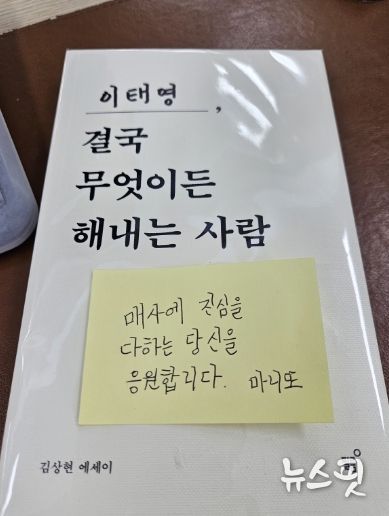 이태영,
결국
무엇이든
해내는 사람
매사에 진심을
다하는 당신을
응원합니다. 마니또
김상현 에세이
뉴스핏